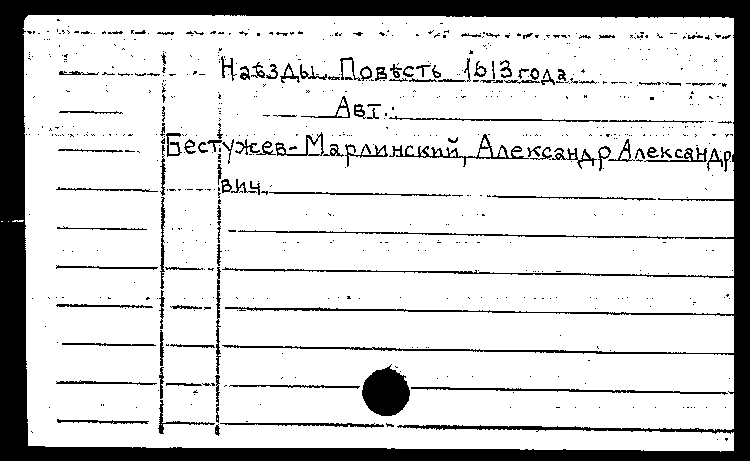 Наѣзды. Повѣсть 1613 года.
Авт.:
Бестужев-Марлинский, Александр Александр
вич.